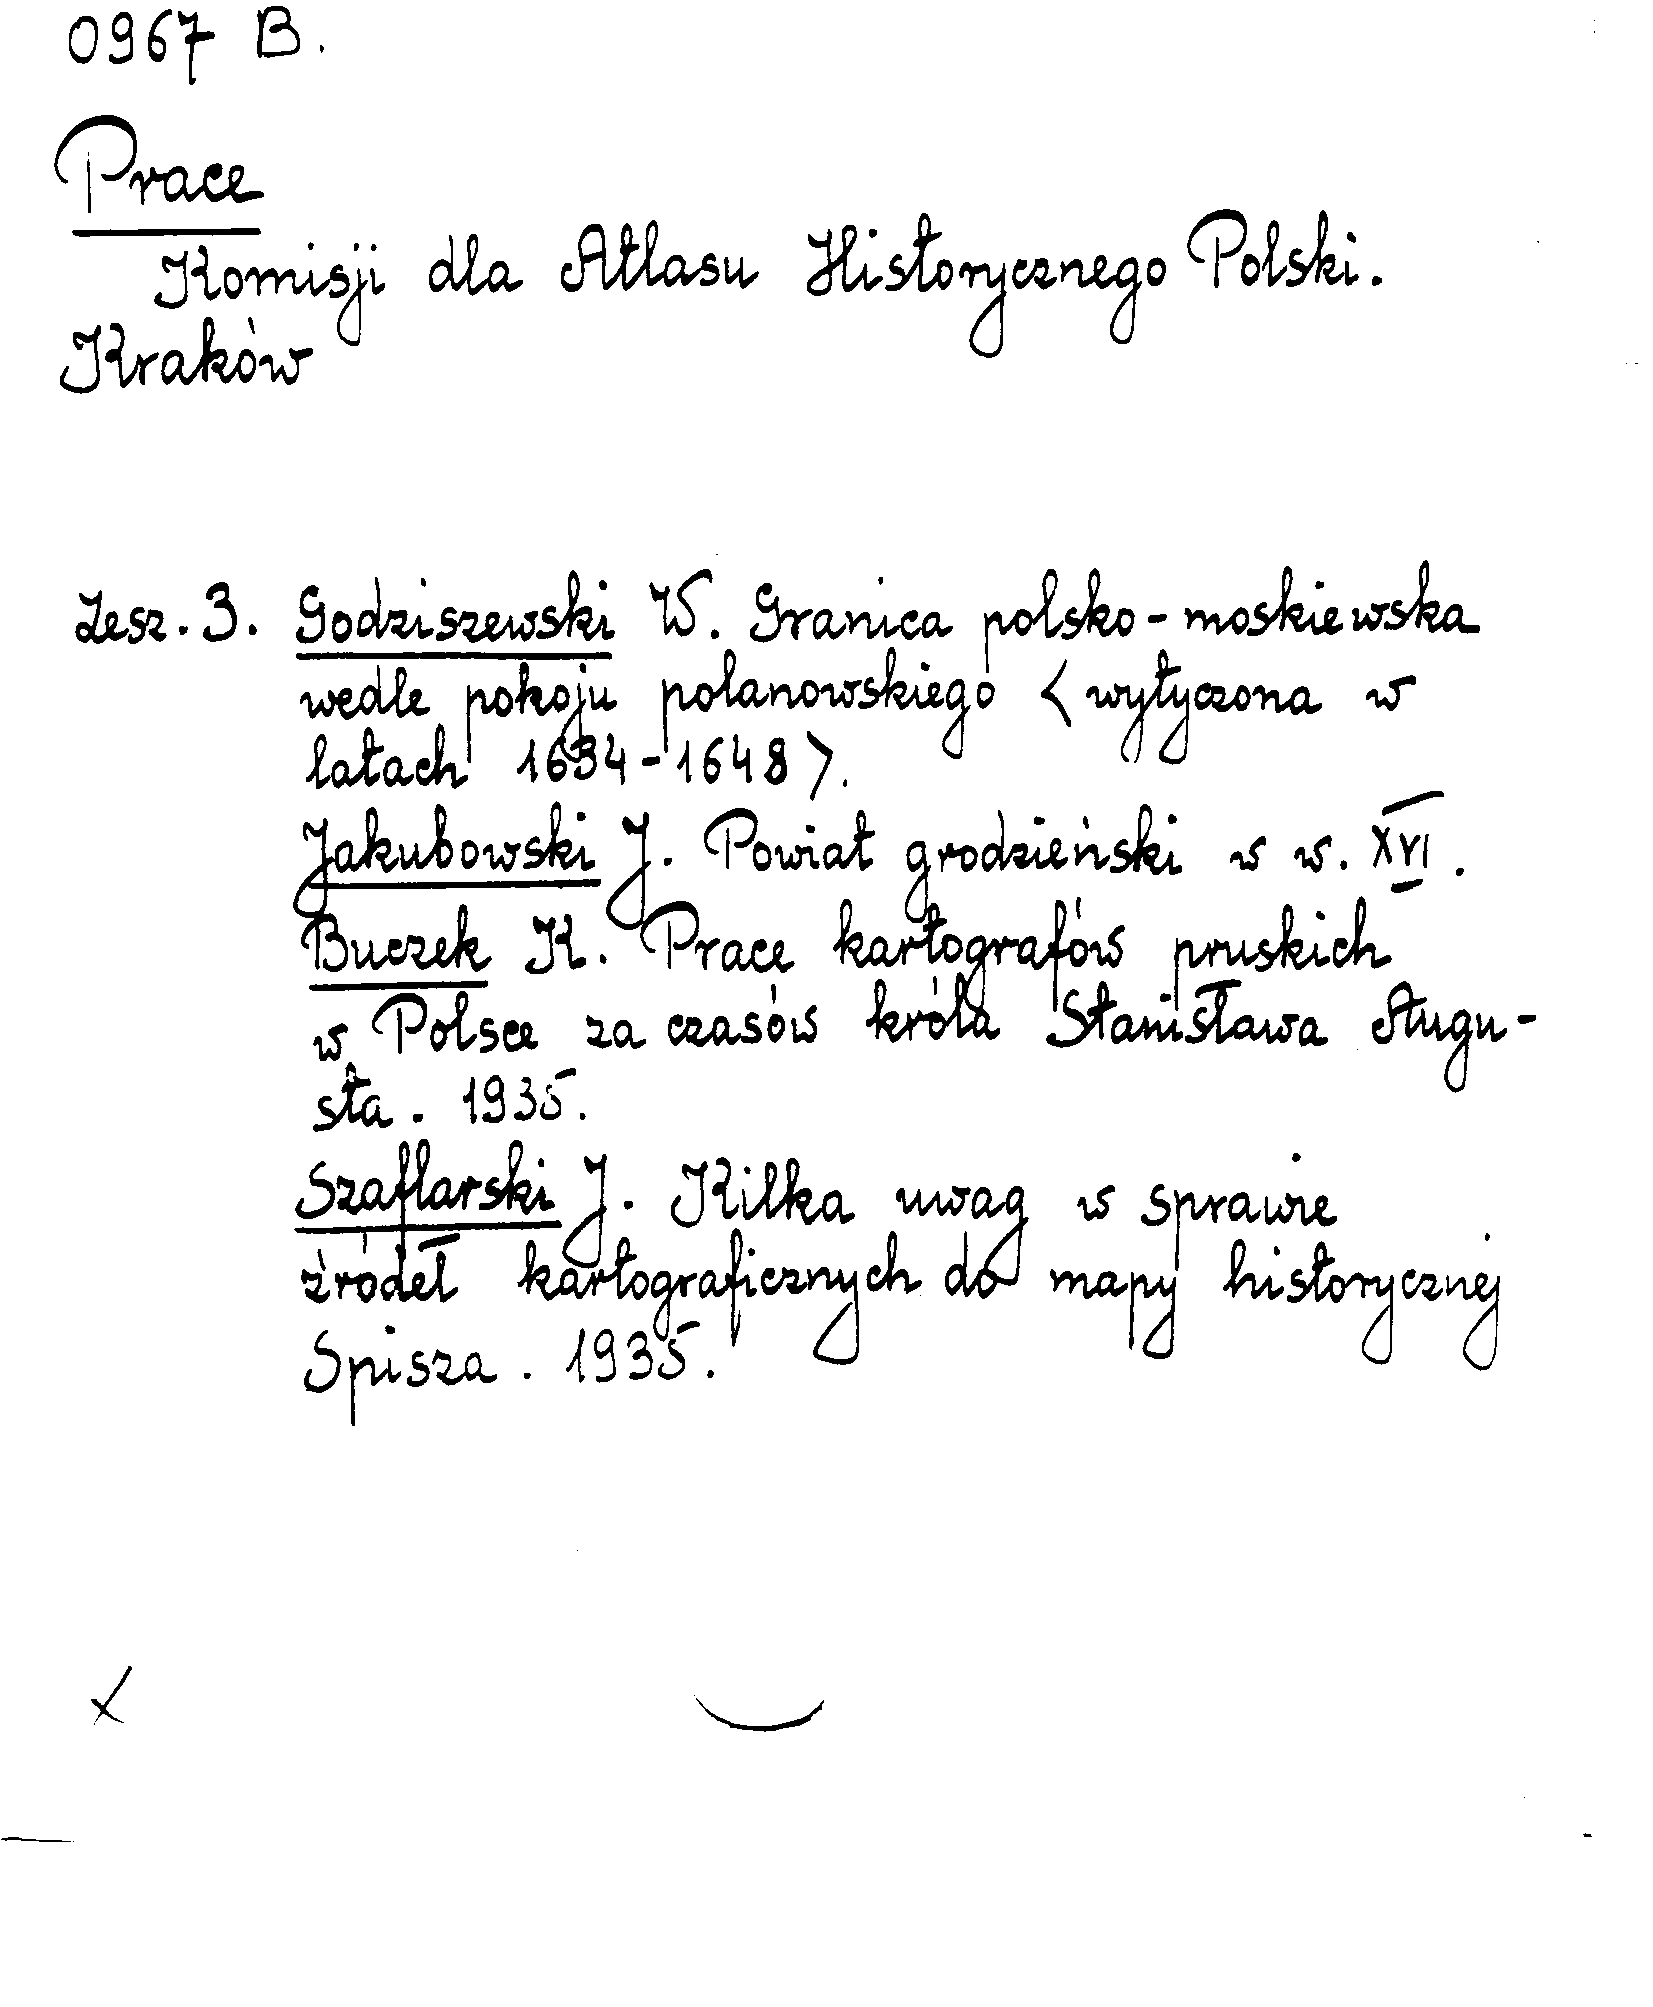 0967 B.
Prace
Komisji dla Atlasu Historycznego Polski.
Kraków
Zesz. 3. Godziszewski W. Granica polsko-moskiewska
wedle pokoju polanowskiego <wytyczona w
latach 1634-1648>.
Jakubowski J. Powiat grodzieński w w. XVI.
Buczek K. Prace kartografów pruskich
w Polsce za czasów króla Stanisława Augu-
sta. 1935.
Szaflarski J. Kilka uwag w sprawie
źródeł kartograficznych do mapy historycznej
Spisza. 1935.